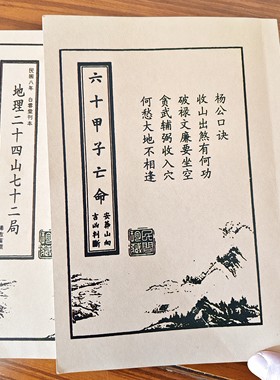 杨公口诀
收山出煞有何功
破禄文廉要坐空
贪武辅弼收入穴
何愁大地不相逢
六十甲子亡命
安葬山向
吉凶判斷
地理二十四山七十二局